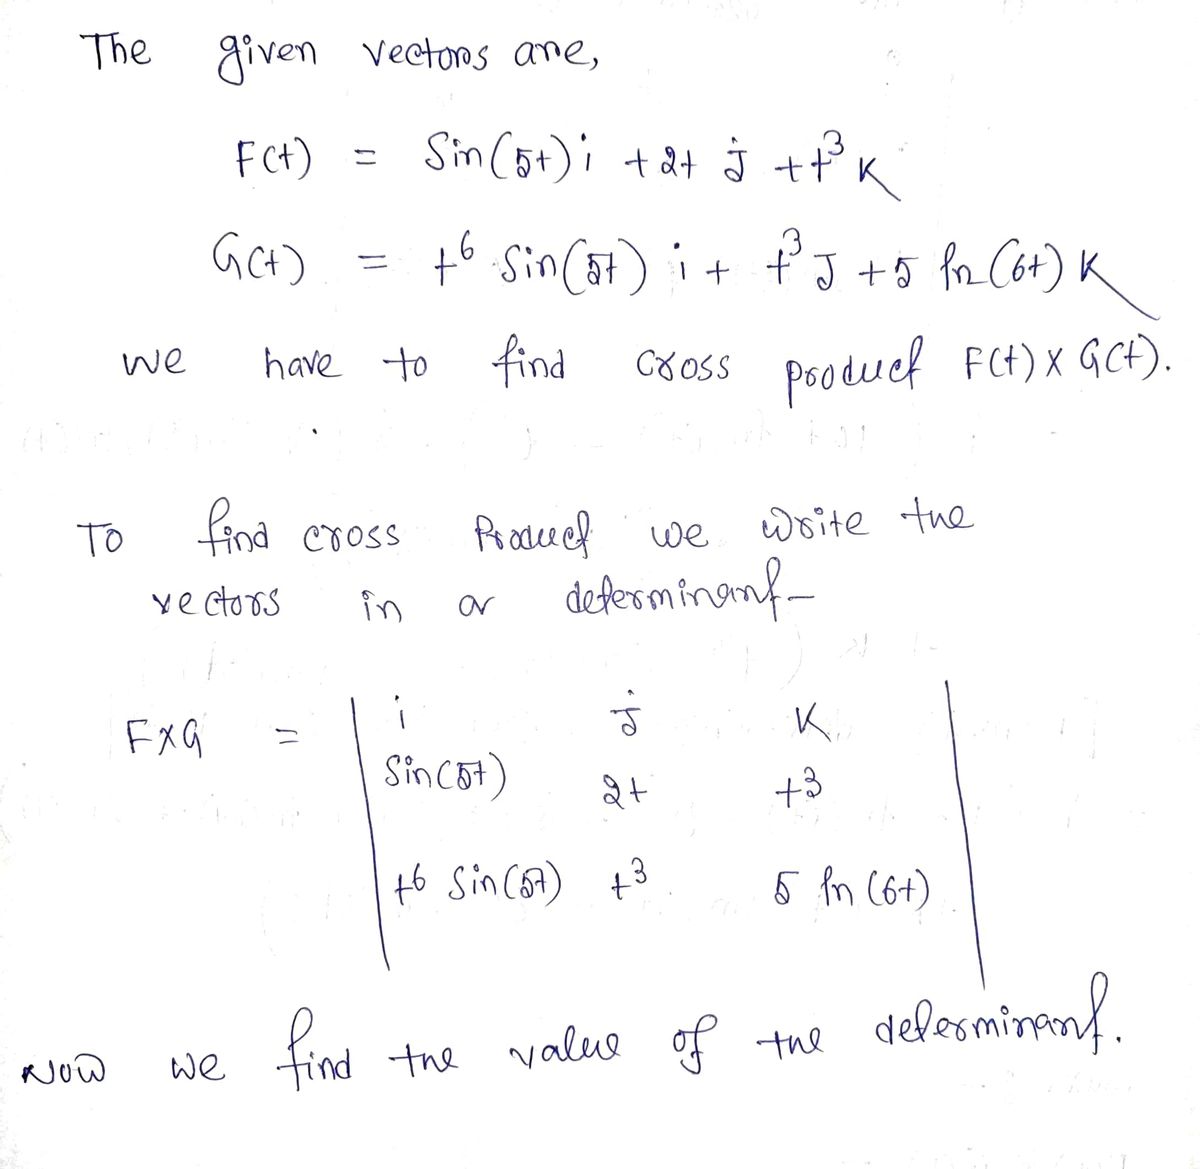 The given vectors are,
F(t) = Sin(5t) i + 2t j + t³ K
G(t) = t⁶ Sin(5t) i + t³ J + 5 ln(6t) K
we have to find cross product F(t) X G(t).
To find cross Product we write the
vectors in a determinant-
FXG = | i j K
Sin(5t) 2t t3
t6 Sin(5t) t3 5 ln(6t) |
Now we find the value of the determinant.